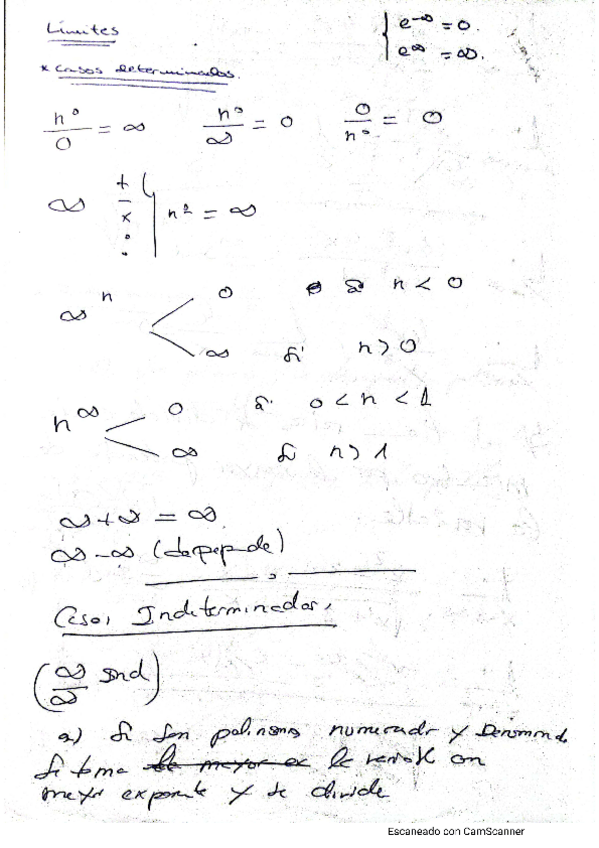 Límites
{ e^-∞ = 0.
e^∞ = ∞.
* Casos determinados.
nº/0 = ∞   nº/∞ = 0   0/nº = 0
∞ + - x : | nº = ∞
∞^n < 0 si n < 0
∞ si n > 0
n^∞ < 0 si 0 < n < 1
∞ si n > 1
∞ + ∞ = ∞
∞ - ∞ (depende)
Casos Indeterminados.
(∞/∞ Ind)
a) Si son polinomios numerador y Denominad.
Se toma la variable con
mayor exponente y se divide
Escaneado con CamScanner